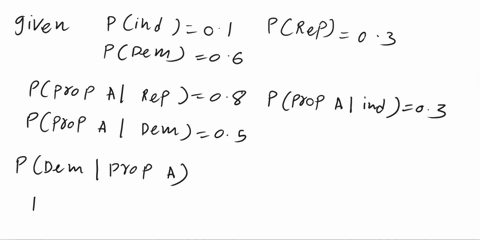 given P(ind) = 0.1 P(Rep) = 0.3
P(Dem) = 0.6
P(Prop A | Rep) = 0.8 P(Prop A | ind) = 0.3
P(Prop A | Dem) = 0.5
P(Dem | Prop A)